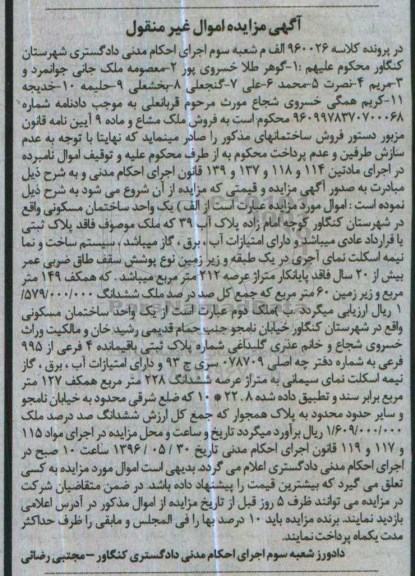 آگهی مزایده اموال غیر منقول
در پرونده کلاسه ۹۶۰۰۲۶ الف م شعبه سوم اجرای احکام مدنی دادگستری شهرستان
کنگاور محکوم علیهم :۱-گوهر طلا خسروی پور ۲-معصومه ملک جانی جوانمرد و
۳-مریم ۴-نصرت ۵-محمد ۶-علی ۷-گنجعلی ۸-بخشعلی ۹-حلیمه ۱۰-خدیجه
۱۱-کریم همگی خسروی شجاع مورث مرحوم قربانعلی به موجب دادنامه شماره
۹۶۰۹۹۷۸۳۷۰۷۰۰۰۶۸ محکوم است به فروش ملک مشاع و ماده ۹ آیین نامه قانون
مزبور دستور فروش ساختمانهای مذکور را صادر مینماید که نهایتا با توجه به عدم
سازش طرفین و عدم پرداخت محکوم به از طرف محکوم علیه و توقیف اموال نامبرده
در اجرای مادتین ۱۱۴ و ۱۱۸ و ۱۳۷ و ۱۳۹ قانون اجرای احکام مدنی و به شرح ذیل
مبادرت به صدور آگهی مزایده و قیمتی که مزایده از آن شروع می شود به شرح ذیل
نموده است : اموال مورد مزایده عبارت است از الف ) یک واحد ساختمان مسکونی واقع
در شهرستان کنگاور کوچه امام زاده پلاک آب ۳۹ که ملک موصوف فاقد پلاک ثبتی
با قرارداد عادی میباشد و دارای امتیازات آب ، برق ، گاز میباشد ، سیستم ساخت و نما
نیمه اسکلت نمای آجری در یک طبقه و زیر زمین نوع پوشش سقف طاق ضربی عمر
بیش از ۲۰ سال فاقد پایانکار متراژ عرصه ۲۱۲ متر مربع میباشد . که همکف ۱۴۹ متر
مربع و زیر زمین ۶۰ متر مربع که جمع کل صد در صد ملک ششدانگ ۵۷۹/۰۰۰/۰۰۰/
۱ ریال ارزیابی میگردد ب )ملک دوم عبارت است از یک واحد ساختمان مسکونی
واقع در شهرستان کنگاور خیابان نامجو جنب حمام قدیمی رشید خان و مالکیت وراث
خسروی شجاع و خانم عذری گلبداغی شماره پلاک ثبتی باقیمانده ۴ فرعی از ۹۹۵
فرعی به شماره دفتر چه اصلی ۰۷۸۷۰۹ سری ج ۹۳ و دارای امتیازات آب ، برق ، گاز
نیمه اسکلت نمای سیمانی به متراژ عرصه ششدانگ ۲۲۸ متر مربع همکف ۱۲۷ متر
مربع برابر سند و تطبیق داده شده ۲۲.۸ * ۱۰ که ضلع شرقی محدود به خیابان نامجو
و سایر حدود محدود به پلاک همجوار که جمع کل ارزش ششدانگ صد درصد ملک
۱/۶۰۹/۰۰۰/۰۰۰ ریال برآورد میگردد تاریخ و ساعت و محل مزایده در اجرای مواد ۱۱۵
و ۱۱۷ و ۱۱۹ قانون اجرای احکام مدنی تاریخ ۳۰ / ۰۵ / ۱۳۹۶ ساعت ۱۰ صبح در
اجرای احکام مدنی دادگستری اعلام می گردد. بدیهی است اموال مورد مزایده به کسی
تعلق می گیرد که بیشترین قیمت را پیشنهاد داده باشد. در ضمن متقاضیان شرکت
در مزایده می توانند ظرف ۵ روز قبل از تاریخ مزایده از اموال مذکور در آدرس اعلامی
بازدید نمایند. برنده مزایده باید ۱۰ درصد بها را فی المجلس و مابقی را ظرف حداکثر
مدت یکماه پرداخت نمایند.
دادورز شعبه سوم اجرای احکام مدنی دادگستری کنگاور –مجتبی رضائی